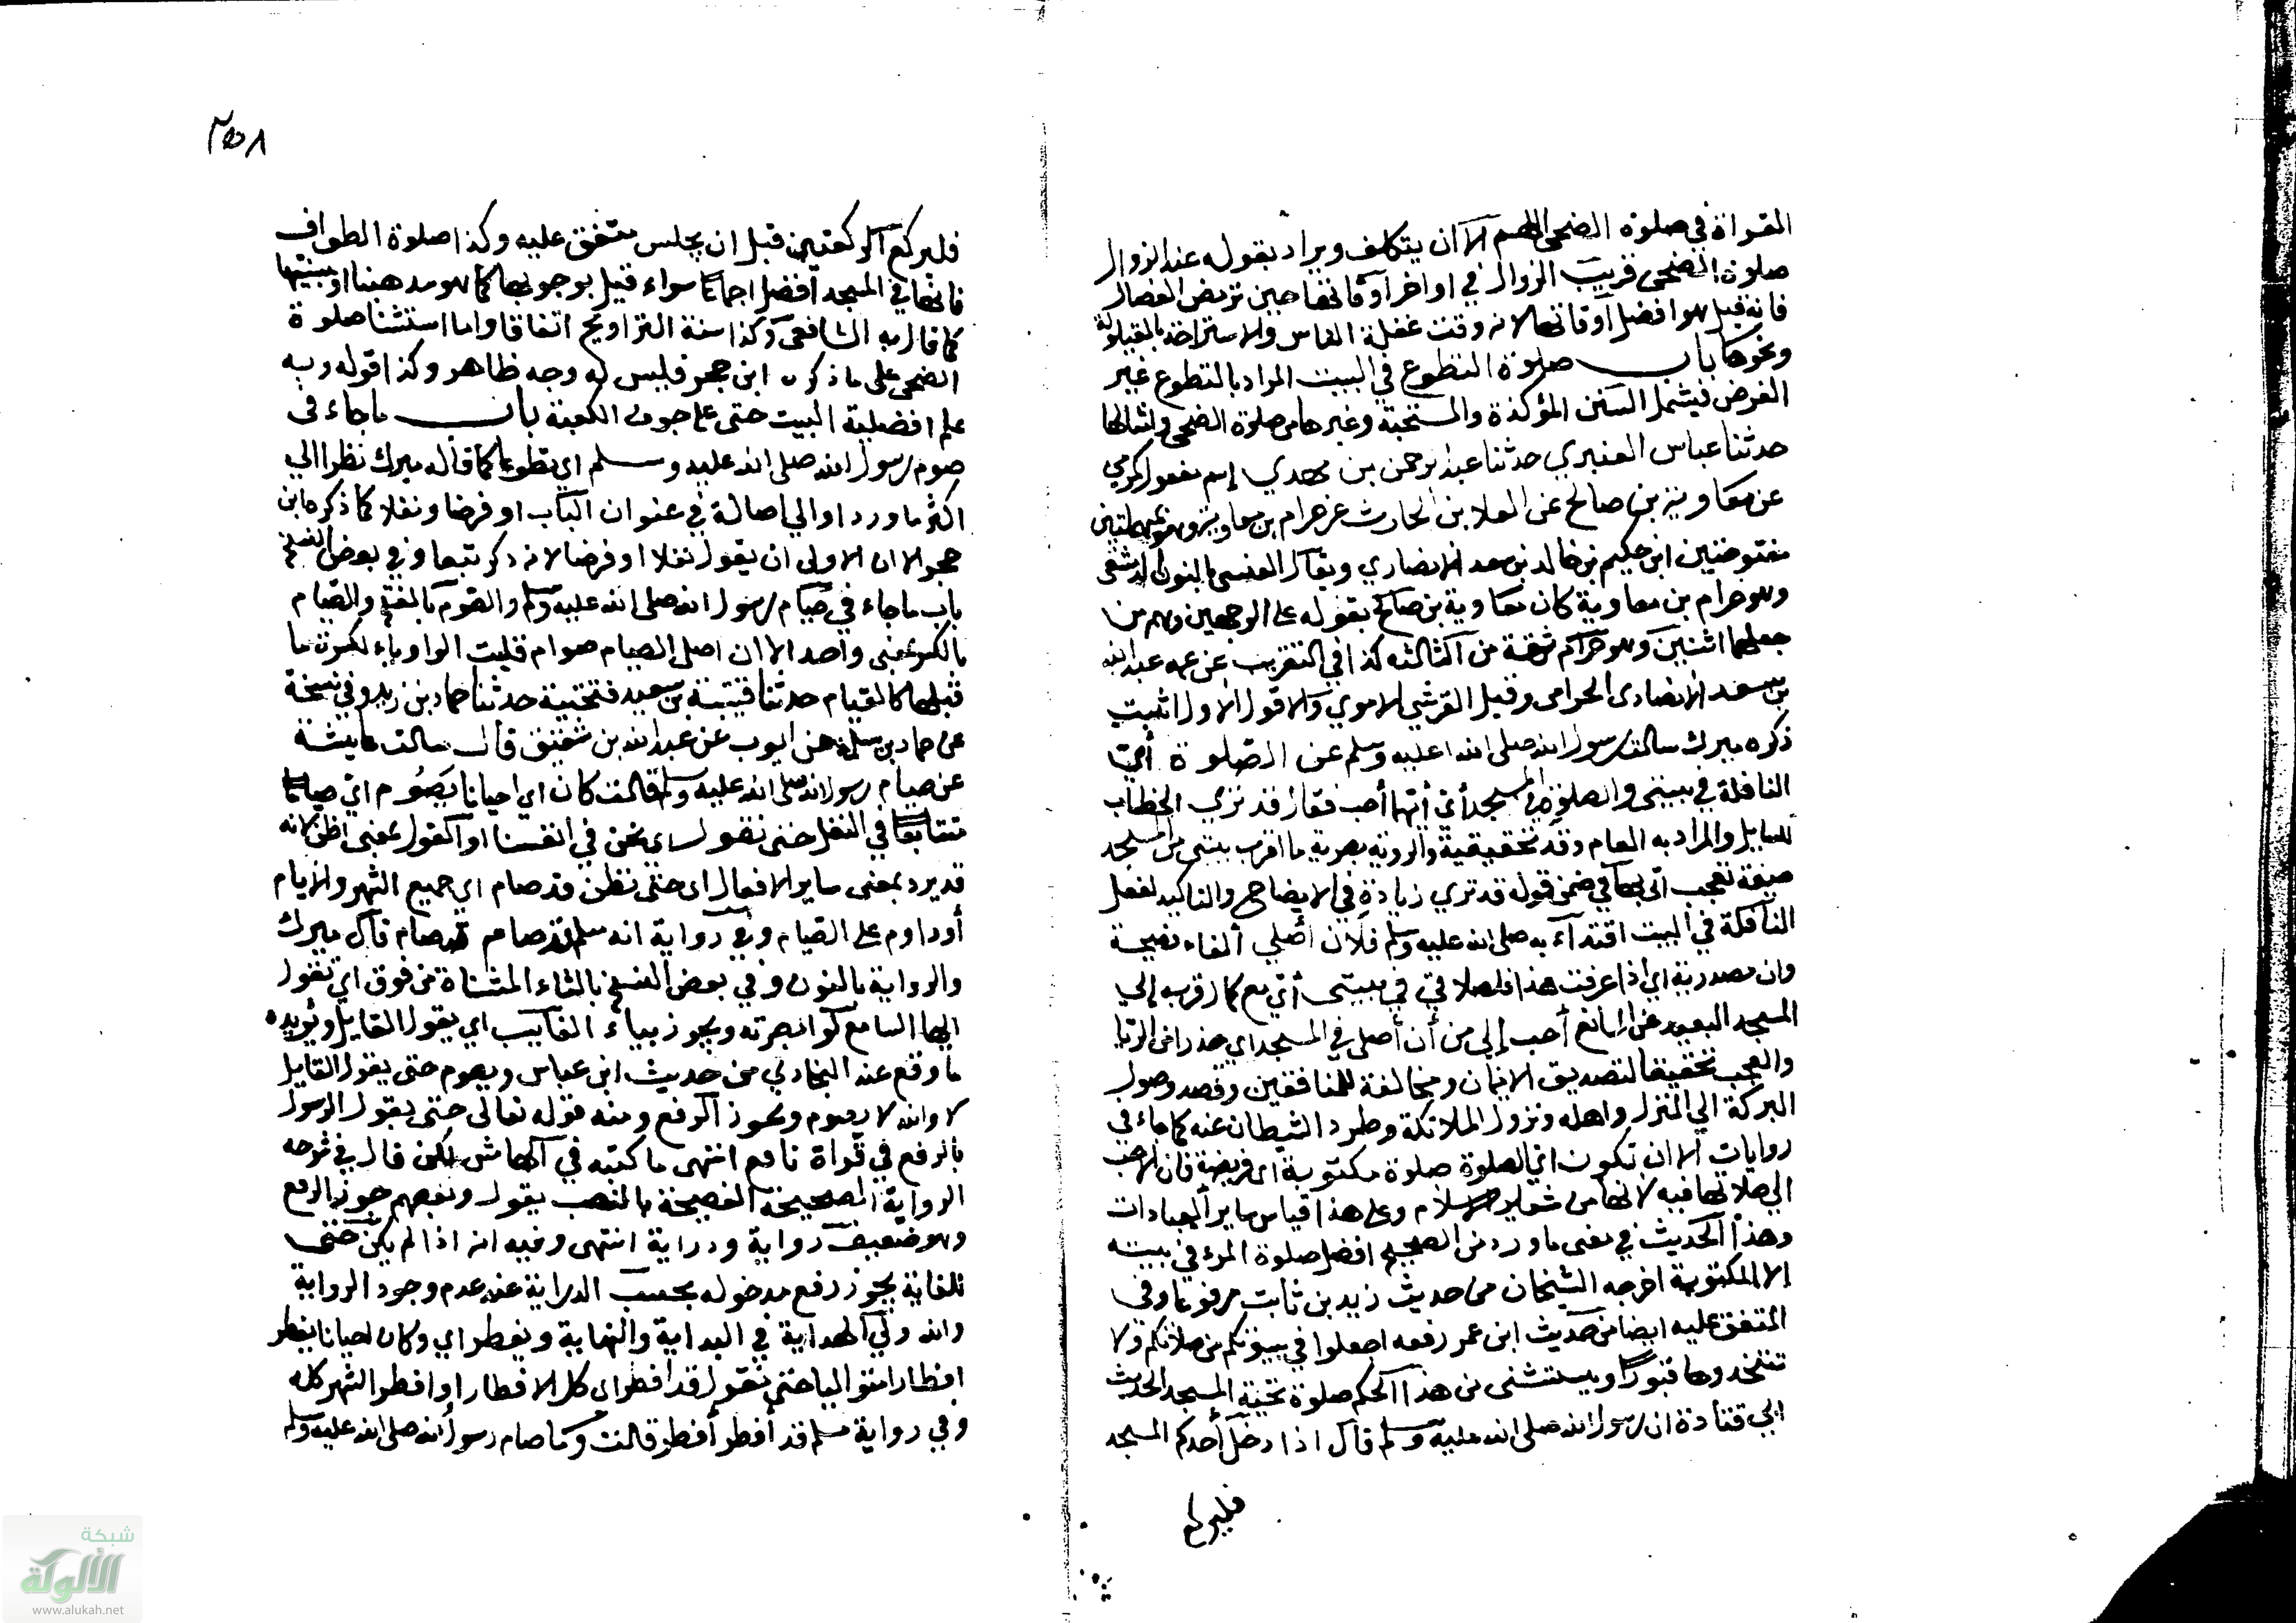 القراة في صلوة الضحى اللهم الا ان يتكلف ويراد بقوله عند الزوال
صلوة الضحى قريب الزوال في اواخر اوقاتها حين ترمض الفصال
فانه قيل هو افضل اوقاتها لانه وقت غفلة الناس والاستراحة بالقيلولة
ونحوها باب صلوة التطوع في البيت المراد بالتطوع غير
الفرض فيشمل السنن المؤكدة والمستحبة وغيرها من صلوة الضحى وامثالها
حدثنا عباس العنبري حدثنا عبد الرحمن بن مهدي إسم مفعول كرمي
عن معاوية بن صالح عن العلا بن الحارث عن حرام بن معاوية وهو بمهملتين
مفتوحتين ابن حكيم بن خالد بن سعد الانصاري ويقال العنسى بالنون الدمشقى
وهو حرام بن معاوية كان معاوية بن صالح بقوله على الوجهين وهم من
جعلهما اثنين وهو حرام ثقة من الثالثه كذا في التقريب عن عمه عبد الله
بن سعد الانصارى الحرامى وقيل القرشي الاموي والاقول الاول اثبت
ذكره ميرك سالت رسول الله صلى الله اعليه وسلم عن الصلوة أي
النافلة في بيتى والصلوة في المسجد أي أيهما أحب فقال قد تري الخطاب
للسايل والمراد به العام وقد تحقيقية والروية بصرية ما اقرب بيتى من المسجد
صيغة تعجب اتى بها في ضمن قوله قد تري زيادة في الايضاح والتاكيد لفعل
النافلة في البيت اقتدآء به صلى الله عليه وسلم فلان أصلي ألفاء فصيحة
وان مصدرية اي اذا عرفت هذا فلصلاتي في بيتى أي مع كمال قربه إلي
المسجد البعيد عن المانع أحب إلي من أن أصلى في المسجد اي حذرا من الريا
والعجب تحقيقا لتصديق الايمان ومخالفة للمنافقين وقصد وصول
البركة الي المنزل واهله ونزول الملائكة وطرد الشيطان عنه كما جاء في
روايات الا ان تكون اي الصلوة صلوة مكتوبة اى فريضة فان الاحب
الي صلاتها فيه لانها من شعاير الاسلام وعلى هذا قياس ساير العبادات
وهذا الحديث في معنى ما ورد من الصحيح افضل صلوة المرء في بيته
الا المكتوبة اخرجه الشيخان من حديث زيد بن ثابت مرفوعا وفى
المتفق عليه ايضا من حديث ابن عمر رفعه اجعلوا في بيوتكم من صلاتكم ولا
تتخذوها قبورا ويستثنى من هذا الحكم صلوة تحية المسجد لحديث
ابي قتادة ان رسول الله صلى الله عليه وسلم قال اذا دخل أحدكم المسجد
فليركع
٢٥٨
فليركع الركعتين قبل ان يجلس متفق عليه وكذا صلوة الطواف
فانها في المسجد أفضل اجماعا سواء قيل بوجوبها كما هو مذهبنا او بسنيتها
كما قال به الشافعى وكذا سنة التراويح اتفاقا واما استثنا صلوة
الضحى على ما ذكره ابن حجر فليس له وجه ظاهر وكذا قوله وبه
علم افضلية البيت حتى على جوف الكعبة باب ما جاء فى
صوم رسول الله صلى الله عليه وسلم اي تطوعا كما قاله ميرك نظرا الي
اكثر ما ورد او الي اصالة في عنوان الباب او فرضا ونفلا كما ذكره ابن
حجر الا ان الاولى ان يقول نفلا او فرضا لانه ذكر تبعا وفي بعض النسخ
باب ما جاء في صيام رسول الله صلى الله عليه وسلم والصوم بالفتح والصيام
بالكسر بمعنى واحد الا ان اصل الصيام صوام قلبت الواو ياء لكسرة ما
قبلها كالقيام حدثنا قتيبة بن سعيد حدثنا حماد بن زيد وفي نسخة
عن حماد بن سلمة عن ايوب عن عبد الله بن شقيق قال سالت عايشة
عن صيام رسول الله صلى الله عليه وسلم قالت كان اي احيانا يَصُوم اي صياما
متتابعا في النفل حتى نقول اي نحن في انفسنا او القول بمعنى الظن لانه
قد يرد بمعنى ساير الافعال اى حتى نظن قد صام اي جميع الشهر والايام
أو داوم على الصيام وفي رواية لمسلم قد صام قد صام قال ميرك
والرواية بالنون وفي بعض النسخ بالتاء المثناة من فوق اي تقول
ايها السامع لو ابصرته ويجوز بياء الغايب اي يقول القايل ويؤيده
ما وقع عند البخاري من حديث ابن عباس ويصوم حتى يقول القايل
لا والله لا يصوم ويجوز الرفع ومنه قوله تعالى حتى يقول الرسول
بالرفع في قراة نافع انتهى ما كتبه في الهامش لكن قال في شرحه
الرواية الصحيحة الفصيحة بالنصب يقول وبعضهم جوز الرفع
وهو ضعيف رواية ودراية انتهى وفيه انه اذا لم يكن حتى
للغاية يجوز رفع مدخوله بحسب الدراية عند عدم وجود الرواية
والله ولي الهداية في البداية والنهاية ويفطر اي وكان احيانا يفطر
افطارا متواليا حتى نقول قد افطر اى كل الافطار او افطر الشهر كله
وفي رواية مسلم قد أفطر أفطر قالت وما صام رسول الله صلى الله عليه وسلم
شبكة
الألوكة
www.alukah.net